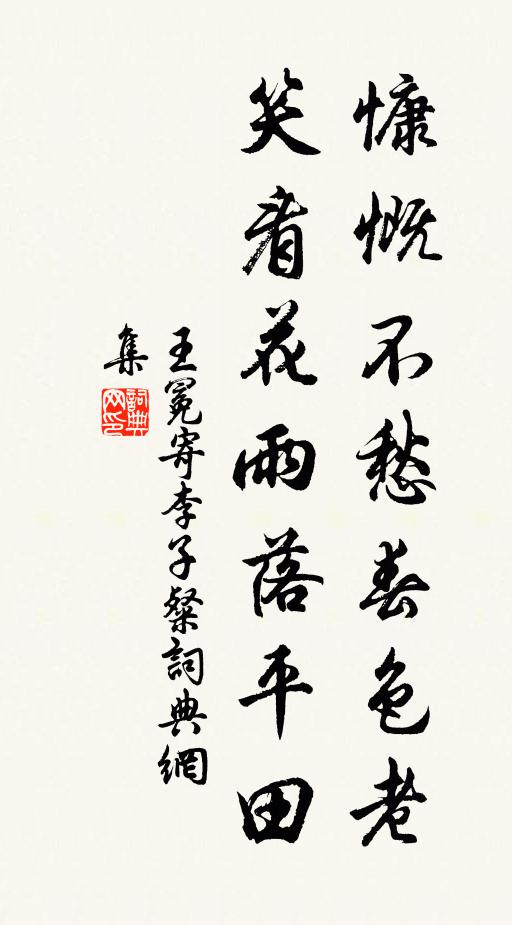 慷慨不愁春色老
笑看花雨落平田
王冕寄李子粲詞典網
集
詞典網印